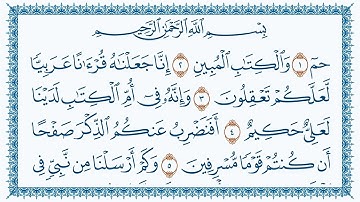 بِسْمِ اللَّهِ الرَّحْمَٰنِ الرَّحِيمِ
حمٓ ١ وَالْكِتَٰبِ الْمُبِينِ ٢ إِنَّا جَعَلْنَٰهُ قُرْءَٰنًا عَرَبِيًّا
لَّعَلَّكُمْ تَعْقِلُونَ ٣ وَإِنَّهُۥ فِىٓ أُمِّ الْكِتَٰبِ لَدَيْنَا
لَعَلِىٌّ حَكِيمٌ ٤ أَفَنَضْرِبُ عَنكُمُ الذِّكْرَ صَفْحًا
أَن كُنتُمْ قَوْمًا مُّسْرِفِينَ ٥ وَكَمْ أَرْسَلْنَا مِن نَّبِىٍّ فِى